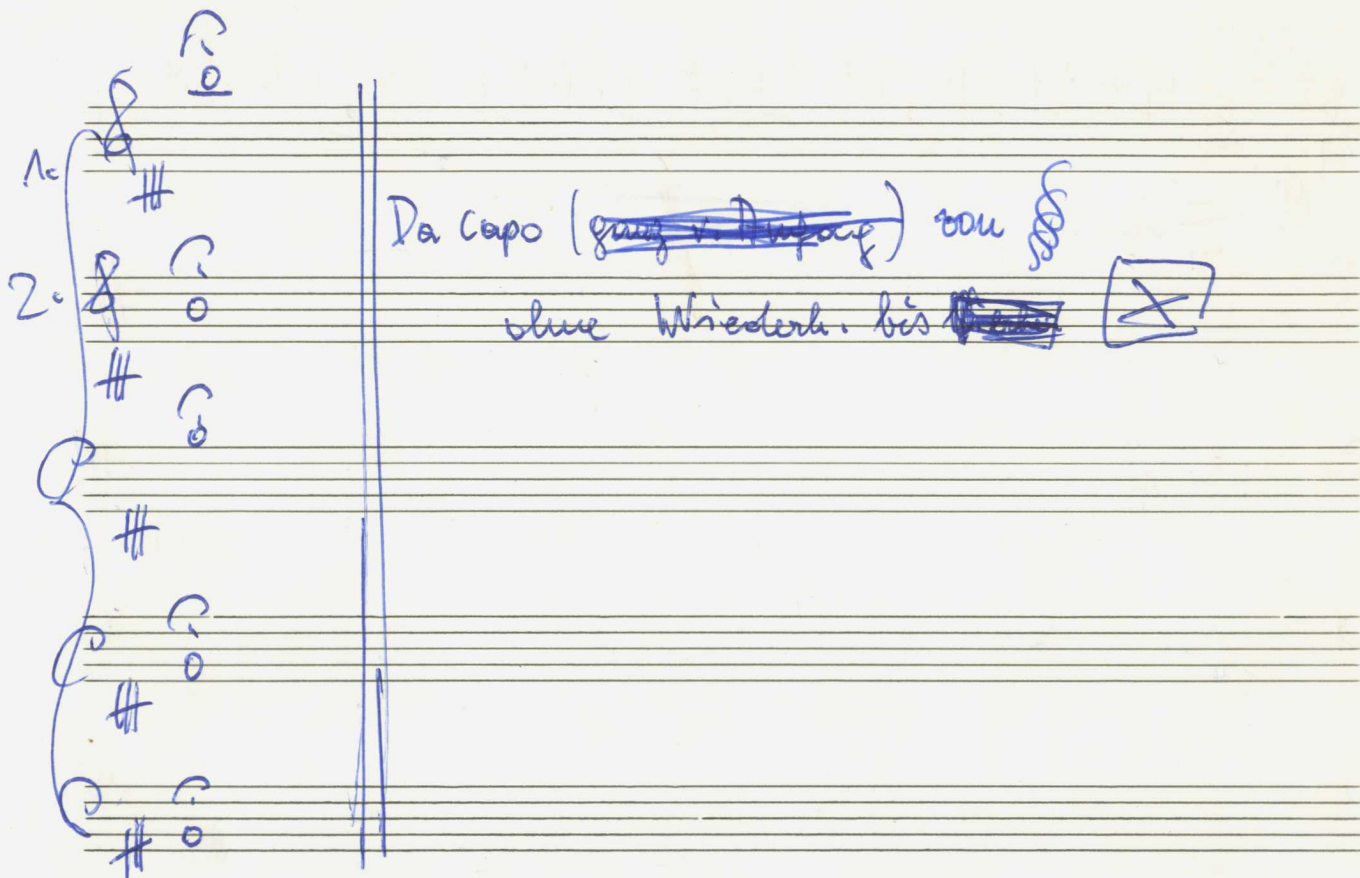 1.
2.
Da Capo (ganz v. Anfang) von
ohne Wiederh. bis X